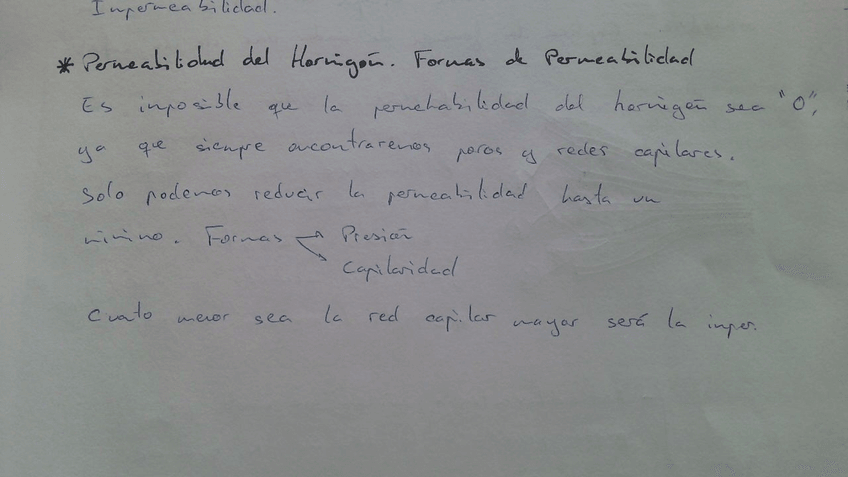 Impermeabilidad.
* Permeabilidad del Hormigón. Formas de Permeabilidad
Es imposible que la permehabilidad del hormigón sea "0",
ya que siempre encontraremos poros y redes capilares.
Solo podemos reducir la permeabilidad hasta un
mínimo. Formas → Presión
→ Capilaridad
Cuato menor sea la red capilar mayor será la imper.